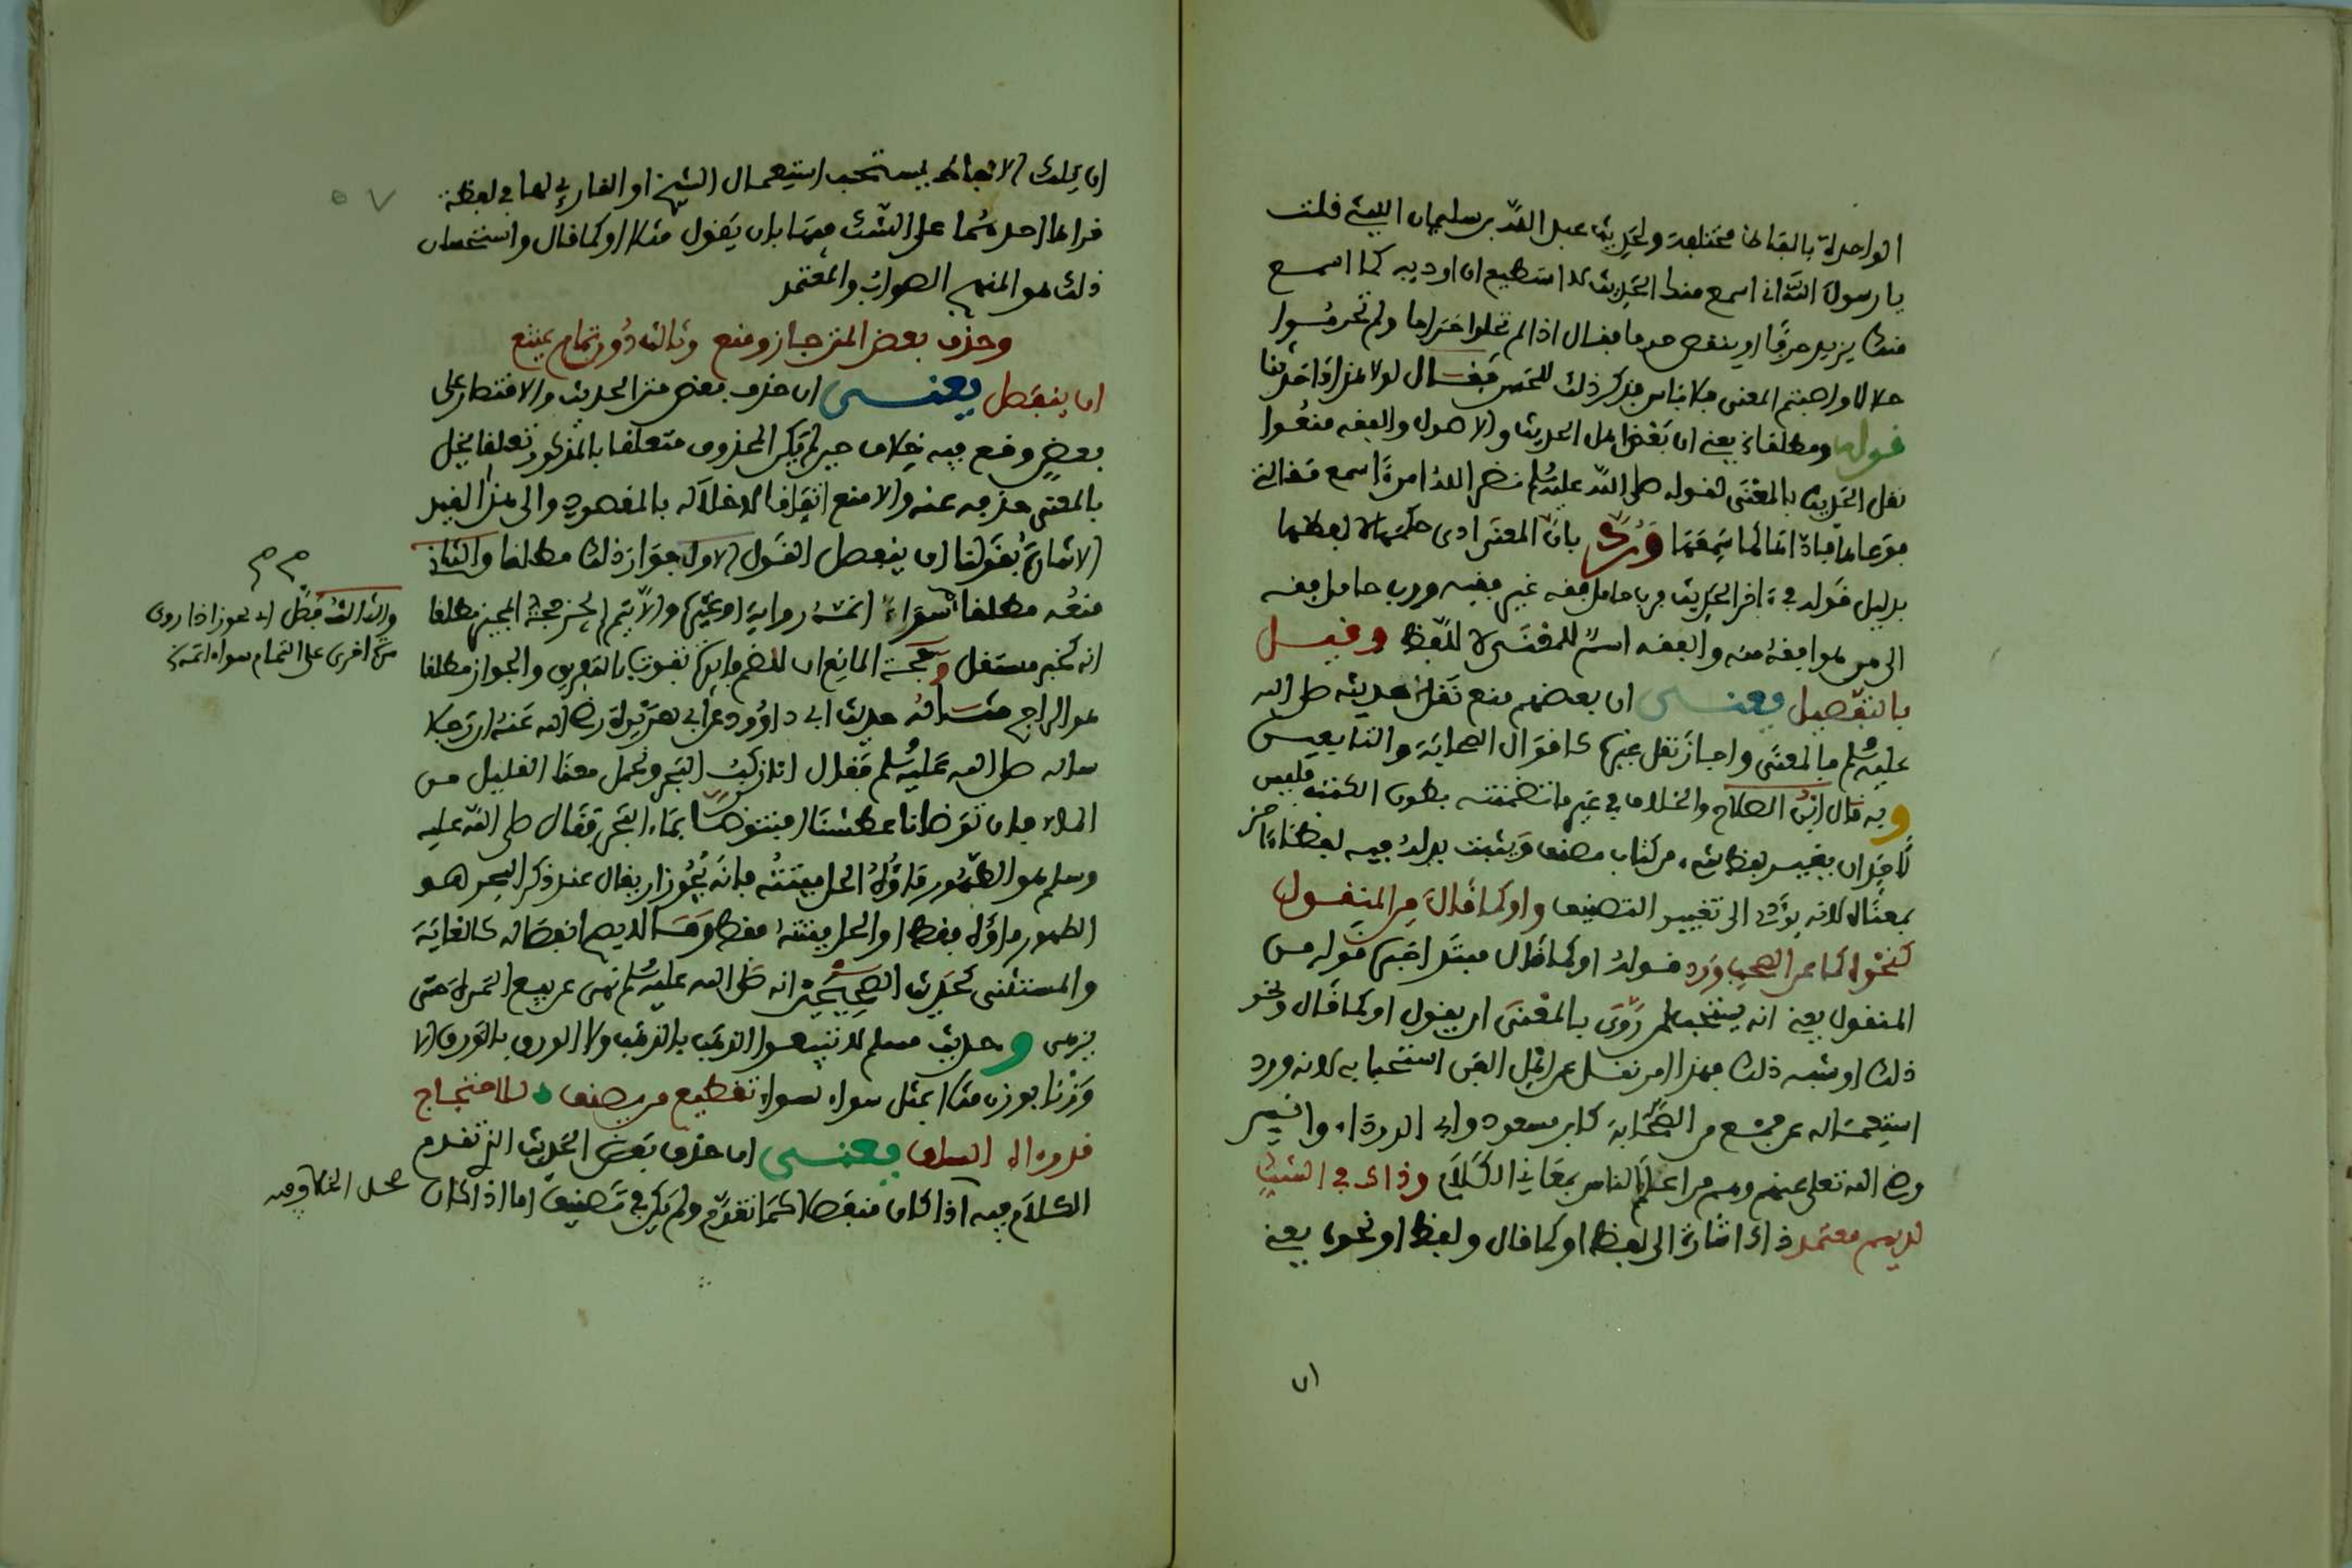 الواحدة بالفاظ مختلفة ولحديث عبد الله بن سليمان الليثي قلت
يا رسول الله اني اسمع منك الحديث لا استطيع ان اوديه كما اسمع
منك يزيد حرفا او ينقص حرفا فقال اذا لم تحلوا حراما ولم تحرموا
حلالا واصبتم المعنى فلا باس فذكر ذلك للحسن فقال لولا هذا ما حدثنا
قوله ومطلقا يعني ان بعض اهل الحديث والاصول والفقه منعوا
نقل الحديث بالمعنى لقوله صلى الله عليه وسلم نضر الله امرءا سمع مقالتي
فوعاها فاداها كما سمعها ورد بان المعنى ادى حكمها لا لفظها
بدليل قوله في ءاخر الحديث فرب حامل فقه غير فقيه ورب حامل فقه
الى من هو افقه منه والفقه اسم للمعنى لا للفظ وقيل
بالتفصيل يعني ان بعضهم منع نقل حديثه صلى الله
عليه وسلم بالمعنى واجاز نقل غيره كاقوال الصحابة والتابعين
وبه قال ابن الصلاح والخلاف في غير ما تضمنته بطون الكتب فليس
لاحد ان يغير لفظ شيء من كتاب مصنف ويثبت بدله فيه لفظا ءاخر
بمعناه لانه يؤدي الى تغيير التصنيف واو كما قال من المنقول
كنحوه كما عن الصحب ورد قوله او كما قال مبتدا خبره قوله من
المنقول يعني انه يستحب لمن روى بالمعنى ان يقول او كما قال ونحو
ذلك او شبه ذلك فهذا امر نقل عن اهل الفن استحبابه لانه ورد
استعماله عن جمع من الصحابة كابن مسعود وابي الدرداء وانس
رضي الله تعلى عنهم وهم من اعلم الناس بمعاني الكلام وذاك في الشك
لديهم معتمد ذاك اشارة الى لفظ او كما قال ولفظ او نحوه يعني
ان تلك الالفاظ يستحب استعمال الشيخ او القارئ لها في لفظة
قراها احدهما على الشك فيها بان يقول مثلا او كما قال واستحسان
ذلك هو المنهج الصواب والمعتمد
وحذف بعض المتن جاز ومنع وثالث دون تمام يمتنع
ان ينفصل يعني ان حذف بعض متن الحديث والاقتصار على
بعض وقع فيه خلاف حيث لم يكن المحذوف متعلقا بالمذكور تعلقا يخل
بالمعنى حذفه عنه والا منع اتفاقا لاخلاله بالمقصود والى هذا القيد
الاشارة بقولنا ان ينفصل القول الاول جواز ذلك مطلقا والثاني
منعه مطلقا سواء اتمه رواية او غيره والا يتم المتن حجة المجيز مطلقا
انه كخبر مستقل وحجة المانع ان للضم فائدة تفوت بالتفريق والجواز مطلقا
هو الراجح مثاله حديث ابي داوود عن ابي هريرة رضي الله عنه ان رجلا
ساله صلى الله عليه وسلم فقال انا نركب البحر ونحمل معنا القليل من
الماء فان توضانا عطشنا افنتوضا بماء البحر فقال صلى الله عليه
وسلم هو الطهور ماؤه الحل ميتته فانه يجوز ان يقال عند ذكر البحر هو
الطهور ماؤه فقط او الحل ميتته فقط ومثال لديهم انفصاله كالغاية
والمستثنى كحديث الصحيحين انه صلى الله عليه وسلم نهى عن بيع الثمرة حتى
تزهى وحديث مسلم لا تبيعوا الذهب بالذهب ولا الورق بالورق الا
وزنا بوزن مثلا بمثل سواء بسواء تقطيع من يصنف للاحتجاج
قدره الاسلاف يعني ان حذف بعض الحديث الذي تقدم
الكلام فيه اذا كان منفصلا كما تقدم ولم يكن في تصنيف اما اذا كان
والثالث فصل اي يجوز اذا روى
مرة اخرى على التمام سواه اتمه
محل الخلاف فيه
ان
٥٧